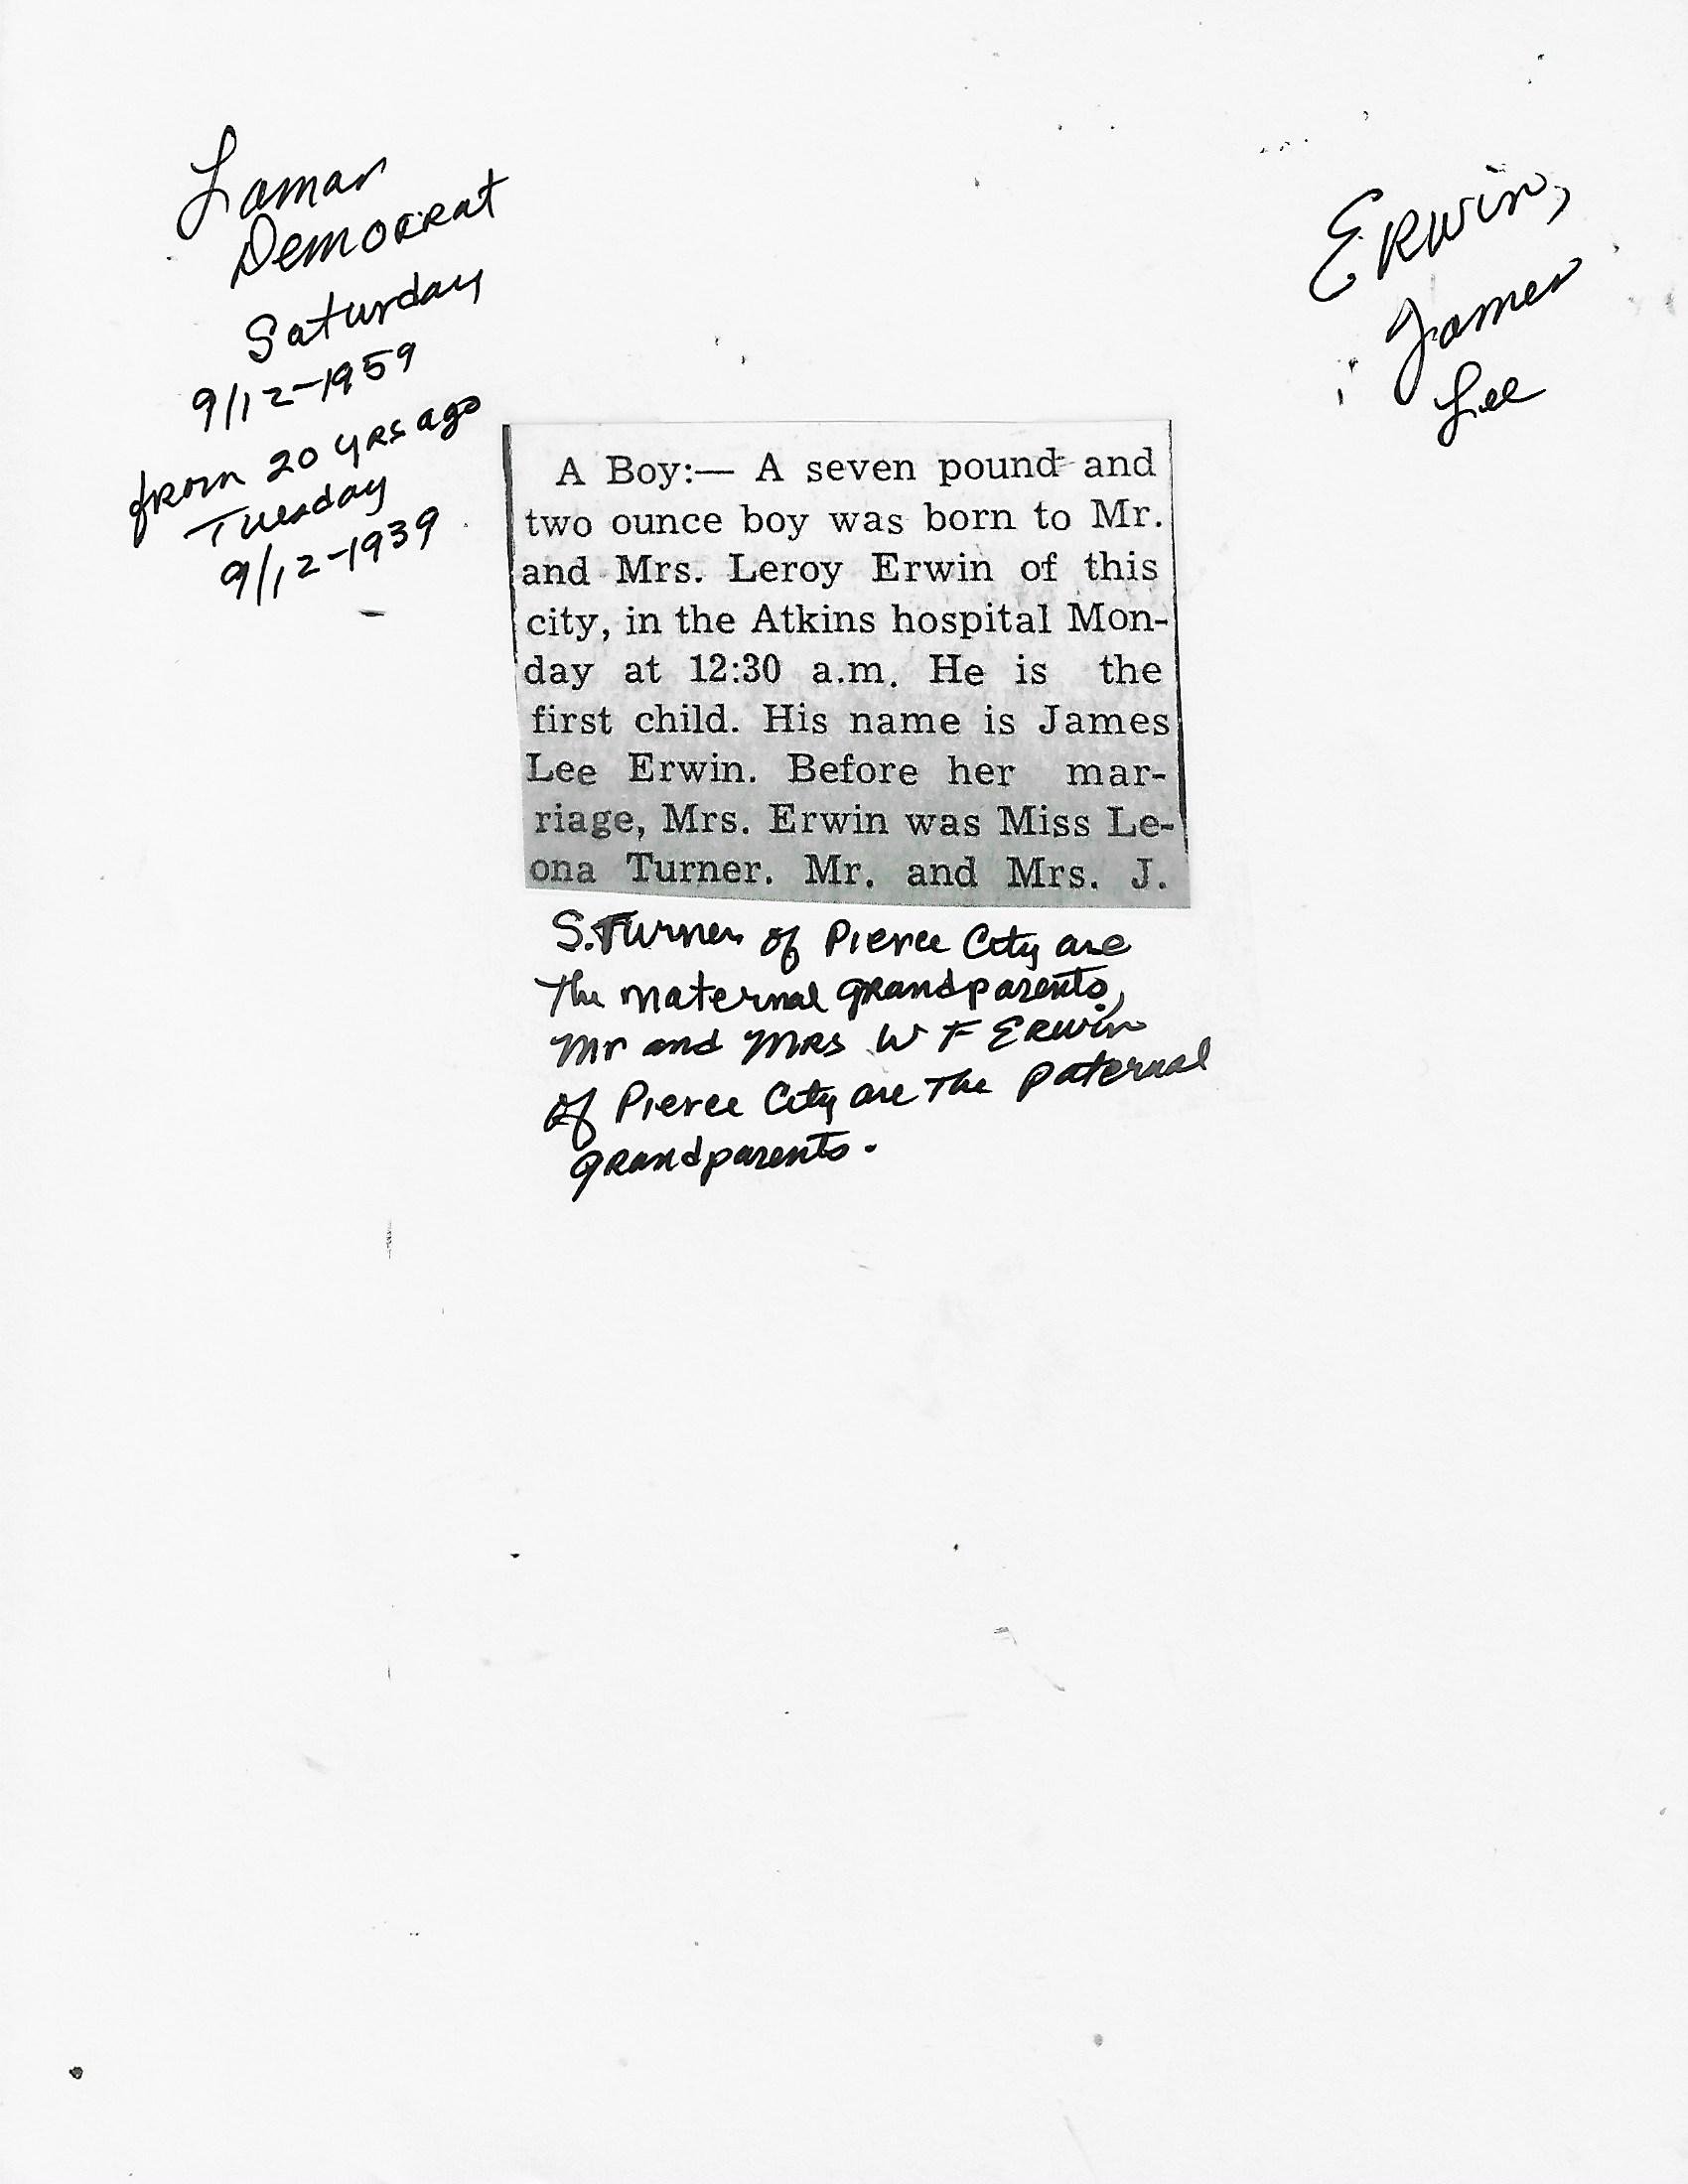 Lamar
Democrat
Saturday
9/12-1959
from 20 yrs ago
Tuesday
9/12-1939
Erwin,
James
Lee
A Boy:— A seven pound and
two ounce boy was born to Mr.
and Mrs. Leroy Erwin of this
city, in the Atkins hospital Mon-
day at 12:30 a.m. He is the
first child. His name is James
Lee Erwin. Before her mar-
riage, Mrs. Erwin was Miss Le-
ona Turner. Mr. and Mrs. J.
S. Turner of Pierce City are
The maternal grandparents,
Mr and Mrs W F Erwin
of Pierce City are The paternal
grandparents.